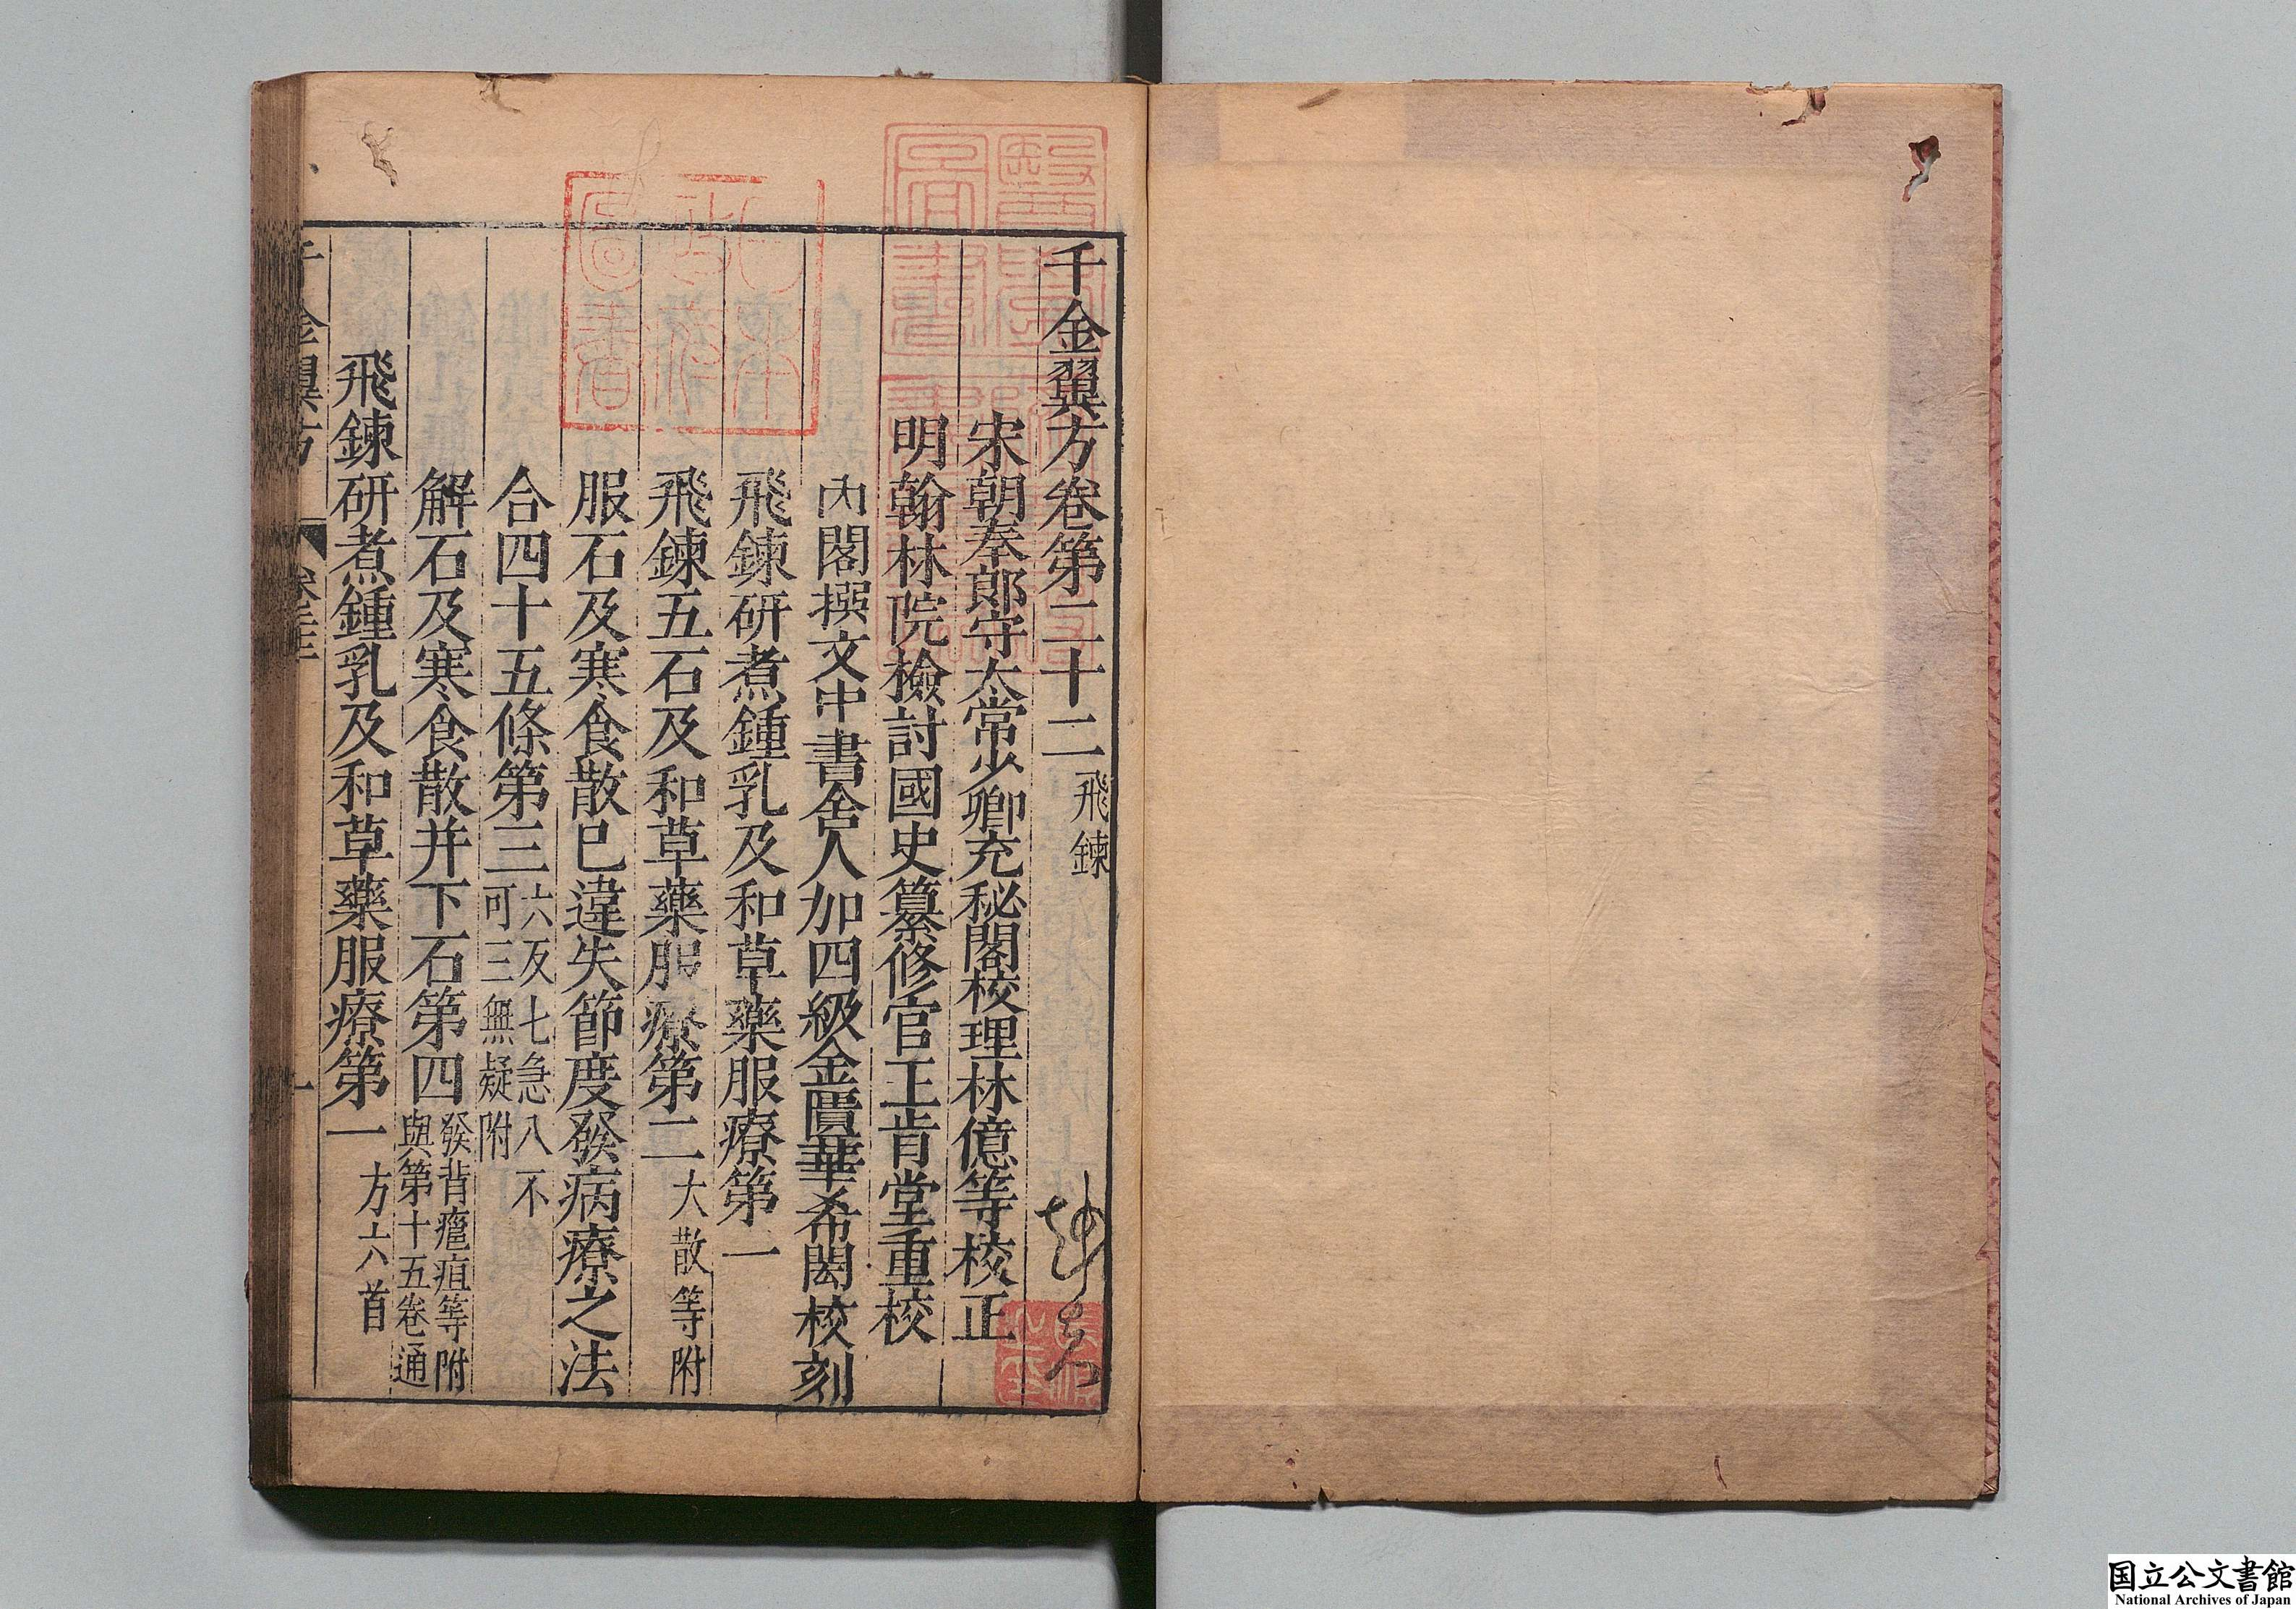 千金翼方卷第二十二 飛鍊
宋朝奉郎守太常少卿充秘閣校理林億等校正
明翰林院檢討國史纂修官王肯堂重校
內閣撰文中書舍人加四級金匱華希閎校刻
飛鍊研煮鍾乳及和草藥服療第一
飛鍊五石及和草藥服療第二 大散等附
服石及寒食散已違失節度發病療之法
合四十五條第三 六反七急八不
可三無疑附
解石及寒食散并下石第四 發背癰疽等附
與第十五卷通
飛鍊研煮鍾乳及和草藥服療第一 方六首
千金翼方 卷二十二 一
国立公文書館
National Archives of Japan